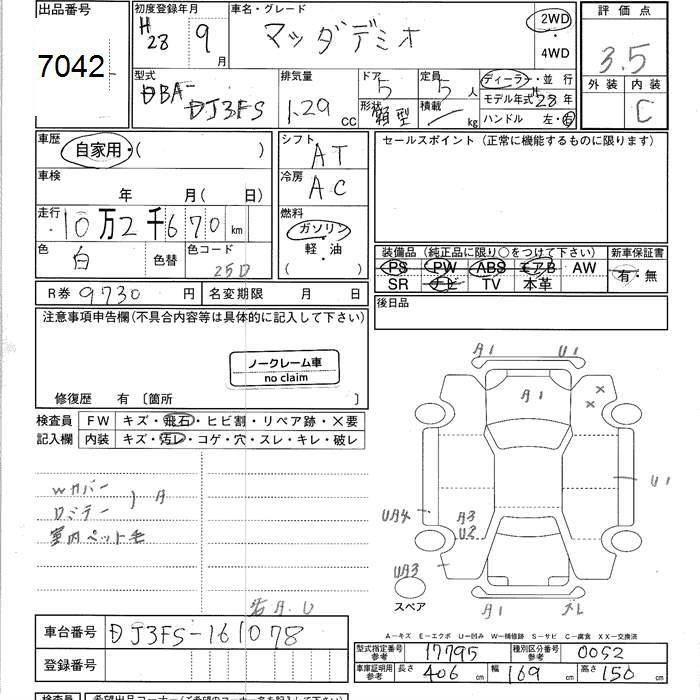 出品番号
7042
初度登録年月
H28 9 月
車名・グレード
マツダデミオ
2WD
・
4WD
評価点
3.5
外装 内装
C
型式
DBA-
DJ3FS
排気量
1.29 cc
ドア 5
定員 5 人
形状 箱型
積載 kg
ディーラー・並行
モデル年式 H28 年
ハンドル 左・右
車歴
自家用・( )
車検
年 月( 日)
走行
10万2千670 km
色
白
色替
色コード
25D
シフト
AT
冷房
AC
燃料
ガソリン
軽・油
( ・ )
セールスポイント(正常に機能するものに限ります)
装備品(純正品に限り○をつけて下さい)
PS PW ABS エアB AW
SR ナビ TV 本革
新車保証書
有・無
R券 9730 円 名変期限 月 日
後日品
注意事項申告欄(不具合内容等は具体的に記入して下さい)
ノークレーム車
no claim
修復歴 有 〔箇所 〕
検査員 FW キズ・飛石・ヒビ割・リペア跡・×要
記入欄 内装 キズ・汚レ・コゲ・穴・スレ・キレ・破レ
Wカバー
ロミテー ) A
室内ペット毛
右A.U
A1 U1
A1
× ×
U1
UA4
A3
U2
UA3
スペア
A1
A-キズ E-エクボ U-凹み W-補修跡 S-サビ C-腐食 XX-交換済
車台番号 DJ3FS-161078
登録番号
型式指定番号 参考 17795 種別区分番号 参考 0052
車庫証明用 参考 長さ 406 cm 幅 169 cm 高さ 150 cm